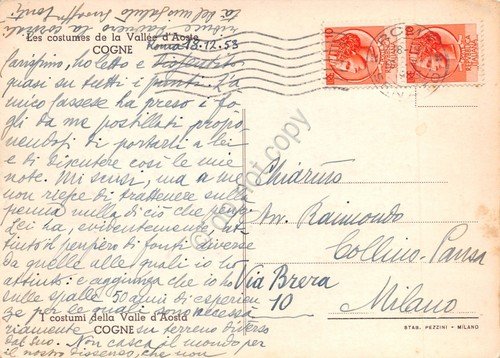 Les costumes de la Vallée d'Aoste
COGNE
Roma 18.12.53
Carissimo, ho letto e
quasi su tutti i punti. L'a
mico Gassese ha preso i fo
gli da me postillati propo
nendosi di portarli a lei
e di discutere così le mie
note. Mi scusi, ma a me
non riesce di trattenere sulla
penna nulla di ciò che penso
Lei ha, evidentemente, at
tinto il pensiero di fonti diverse
da quelle alle quali io ho
attinto: e aggiunga che io ho
sulle spalle 50 anni di esperien
ze per le quali sono
riamente su terreno diverso
dal suo. Non casca il mondo per
il nostro dissenso, che non
I costumi della Valle d'Aosta
COGNE
Chiar.mo
Avv. Raimondo
Collino-Pansa
Via Brera
10
Milano
STAB. PEZZINI - MILANO
copy